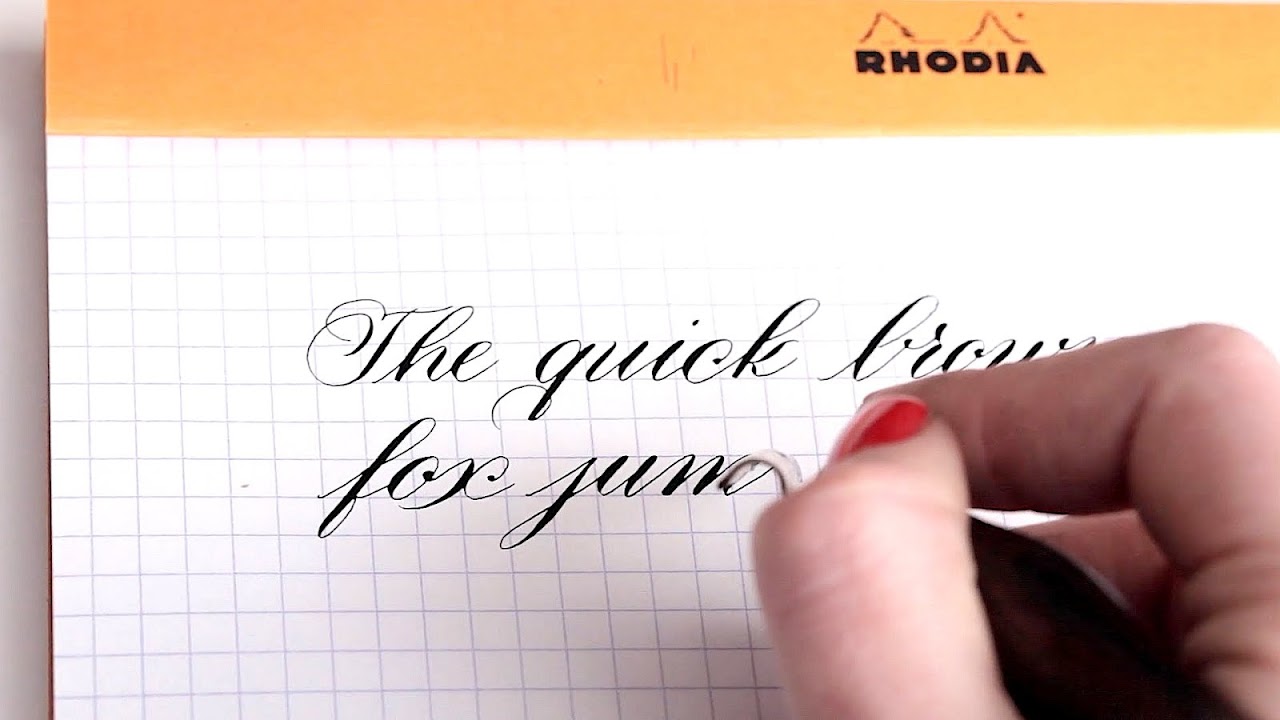 RHODIA
The quick brow
fox jum